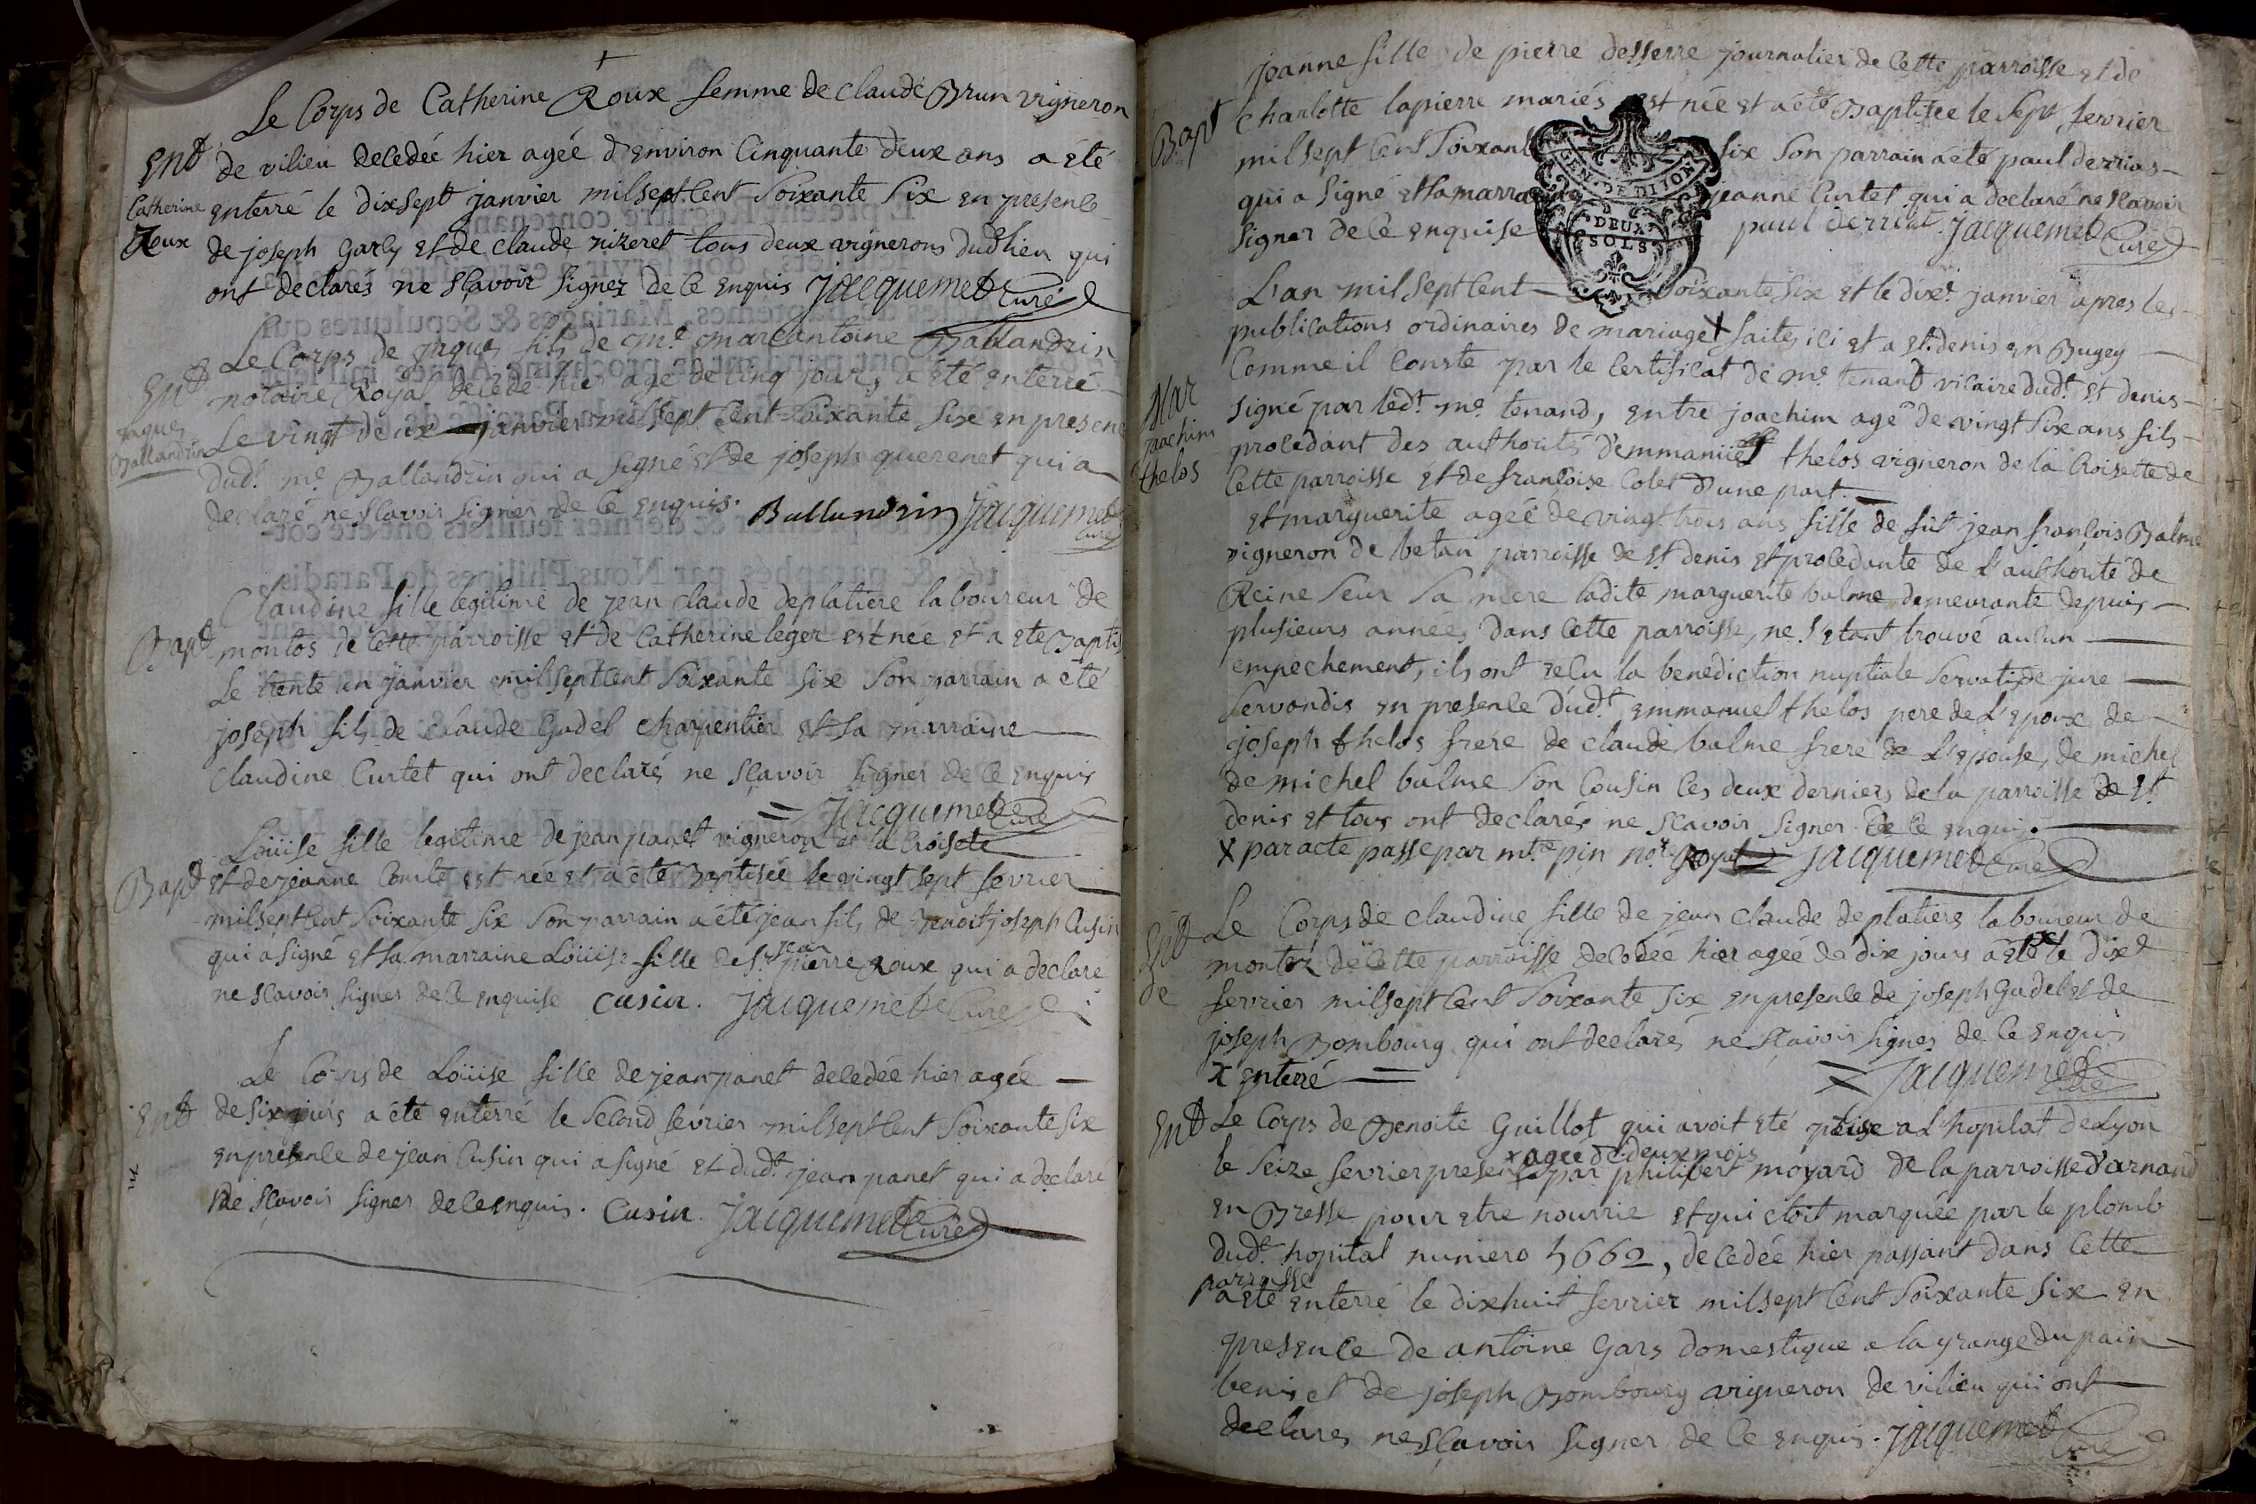 Le Corps de Catherine Roux femme de claude Brun vigneron
Ent
de vilieu decedée hier agée d'environ Cinquante deux ans a été
Catherine
enterré le dixsept janvier milsept cent soixante six en presence
Roux
de joseph Garly et de claude nizeret tous deux vignerons dud. lieu qui
ont declarés ne sçavoir signer de ce enquis Jacquemet Curé
Le Corps de jaques fils de me. marcantoine Ballandrin
Ent
notaire Royal decedé hier agé de cinq jours a été enterré
jaques
Ballandrin
Le vingt deux janvier milsept cent soixante six en presence
dud. me. Ballandrin qui a signé et de joseph querenet qui a
declaré ne sçavoir signer de ce enquis. Ballandrin Jacquemet
curé
Claudine fille legitime de jean claude deplatiere laboureur de
Bapt
montos de cette parroisse et de Catherine leger est née et a été Baptisée
Le trente un janvier milsept cent soixante six Son parrain a été
joseph fils de claude Gudel charpentier et sa marraine
claudine Curtet qui ont declarés ne sçavoir signer de ce enquis
Jacquemet Curé
Loüise fille legitime de jean panet vigneron de la Croisete
Bapt
et de jeanne Comte est née et a été Baptisée le vingt sept fevrier
milsept cent soixante six son parrain a été jean fils de Benoit joseph Cusin
qui a signé et sa marraine Loüise fille de Sr. jean pierre Roux qui a declaré
ne sçavoir signer de ce enquise cusin. Jacquemet Curé
Le Corps de Loüise fille de jean panet decedée hier agée
Ent
de six jours a été enterré le second fevrier milsept cent soixante six
en presence de jean Cusin qui a signé et dud. jean panet qui a declaré
ne sçavoir signer de ce enquis. Cusin. Jacquemet Curé
joanne fille de pierre desserre journalier de cette parroisse et de
Bapt
Charlotte lapierre mariés est née et a été Baptisée le sept fevrier
milsept cent soixante six son parrain a été paul derrias
qui a signé et sa marraine jeanne Curtet qui a declaré ne sçavoir
signer de ce enquise paul derriat. Jacquemet Curé
GEN. DE DIJON
DEUX
SOLS
L'an milsept cent soixante six et le dixe. janvier apres les
publications ordinaires de mariage X faites ici et a st. denis en Bugey
Comme il conste par le certificat de me. tenand vicaire dud. st. denis
Mar
joachim
thelos
signé par led. me. tenand, entre joachim agé de vingt six ans fils
procedant des authorités d'emmanuel thelos vigneron de la Croisette de
cette parroisse et de françoise Colet d'une part.
et marguerite agée de vingt trois ans fille de fut jean françois Balme
vigneron de betan parroisse de st. denis et procedante de l'authorité de
Reine seur sa mere ladite marguerite balme demeurante depuis
plusieurs années dans cette parroisse, ne s'etant trouvé aucun
empechement, ils ont recu la benediction nuptiale servatis de jure
servandis en presence dud. emmanuel thelos pere de l'epoux de
joseph thelos frere de claude balme frere de l'epouse, de michel
de michel balme son cousin les deux derniers de la parroisse de st.
denis et tous ont declarés ne sçavoir signer de ce enquis.
X par acte passe par mtre. pin nore. Royal Jacquemet Curé
Le Corps de claudine fille de jean claude deplatiere laboureur de
Ent
de
montoz de cette parroisse decedée hier agée de dix jours a été X le dixe
fevrier milsept cent soixante six en presence de joseph Gudel et de
joseph Bombourg qui ont declarés ne sçavoir signer de ce enquis
X enterré Jacquemet Curé
Ent
Le Corps de Benoite Guillot qui avoit été prise a l'hopital de Lyon
X agée de deux mois
le seize fevrier present X par philibert moyard de la parroisse d'arnand
en Bresse pour etre nourrie et qui etoit marquée par le plomb
dud. hopital numero 5662, decedée hier passant dans cette
parroisse
a été enterré le dixhuit fevrier milsept cent soixante six en
presence de antoine Gars domestique a la grange du pain
beni et de joseph Bombourg vigneron de vilieu qui ont
declares ne sçavoir signer de ce enquis. Jacquemet Curé